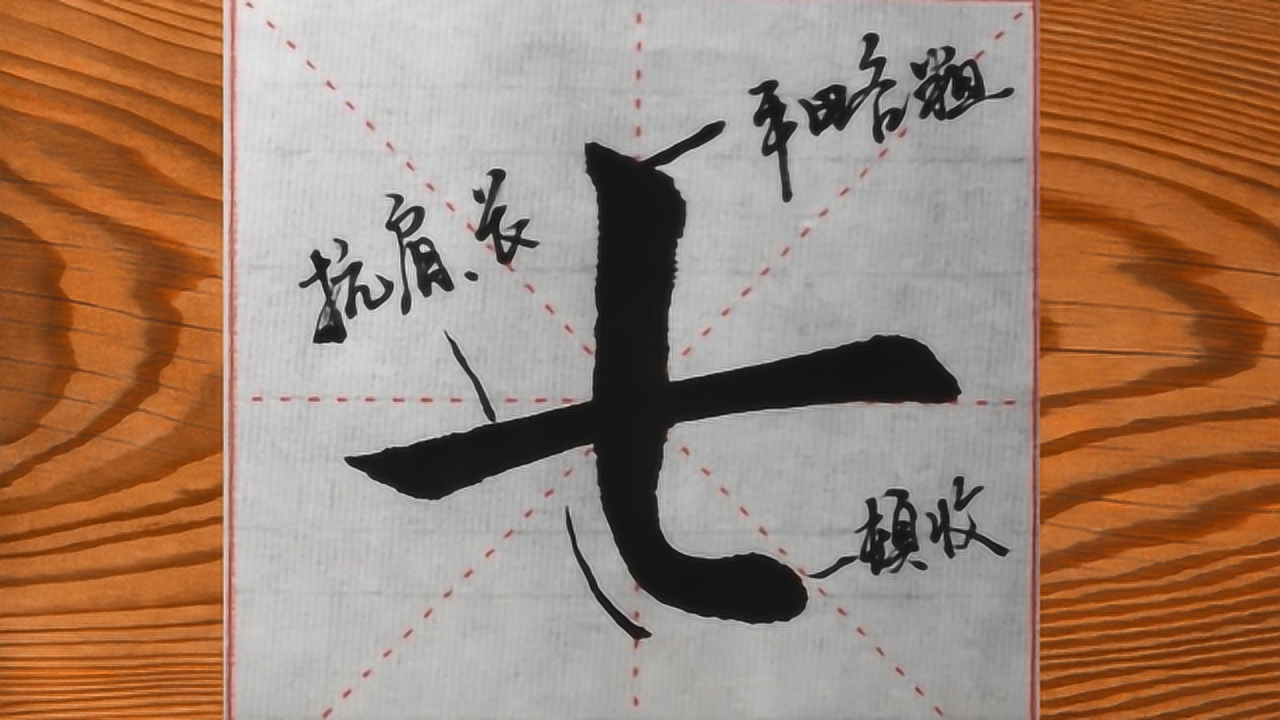 平略粗
抗肩、长
七
顿收